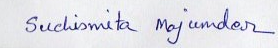 Suchismita Majumder